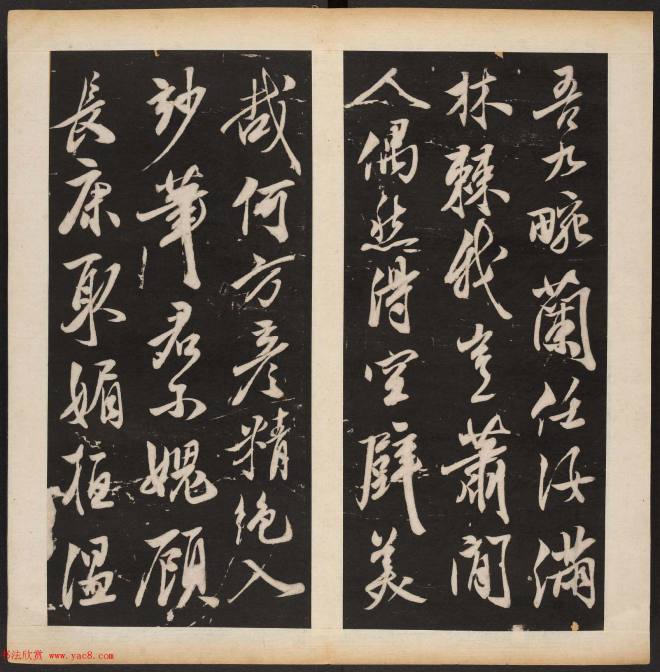 吾九畹蘭任汝滿
林棘我意蕭閒
人偶然得空壁美
哉何方彥精絶入
妙筆君不媿顧
長康取媚桓溫
书法欣赏 www.yac8.com